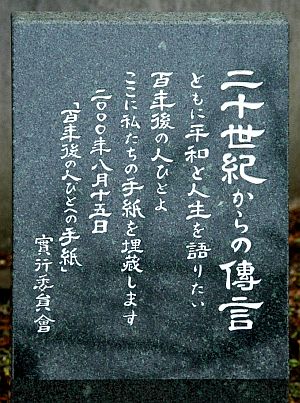 二十世紀からの傳言
ともに平和と人生を語りたい
百年後の人びとよ
ここに私たちの手紙を埋蔵します
二〇〇〇年八月十五日
「百年後の人びとへの手紙」
實行委員會